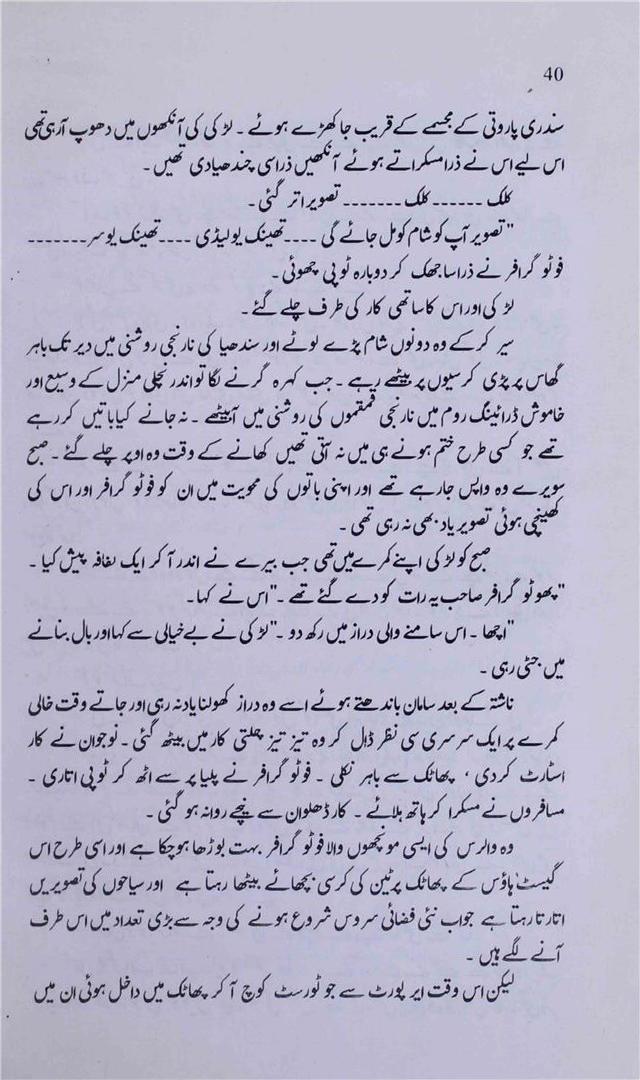 40
سندری پاروتی کے مجسمے کے قریب جا کھڑے ہوئے ۔ لڑکی کی آنکھوں میں دھوپ آرہی تھی
اس لیے اس نے ذرا مسکراتے ہوئے آنکھیں ذراسی چندھیادی تھیں ۔
کلک ------ کلک ------- تصویر اتر گئی ۔
"تصویر آپ کو شام کو مل جائے گی ---- تھینک یو لیڈی ---- تھینک یو سر -------
فوٹو گرافر نے ذرا سا جھک کر دوبارہ ٹوپی چھوئی ۔
لڑکی اور اس کا ساتھی کار کی طرف چلے گئے ۔
سیر کر کے وہ دونوں شام پڑے لوٹے اور سندھیا کی نارنجی روشنی میں دیر تک باہر
گھاس پر پڑی کرسیوں پر بیٹھے رہے ۔ جب کہرہ گرنے لگا تو اندر نچلی منزل کے وسیع اور
خاموش ڈرائینگ روم میں نارنجی قمقموں کی روشنی میں آبیٹھے ۔ نہ جانے کیا باتیں کر رہے
تھے جو کسی طرح ختم ہونے ہی میں نہ آتی تھیں کھانے کے وقت وہ اوپر چلے گئے ۔ صبح
سویرے وہ واپس جا رہے تھے اور اپنی باتوں کی محویت میں ان کو فوٹو گرافر اور اس کی
کھینچی ہوئی تصویر یاد بھی نہ رہی تھی ۔
صبح کو لڑکی اپنے کمرے میں تھی جب بیرے نے اندر آ کر ایک لفافہ پیش کیا ۔
"پھوٹو گرافر صاحب یہ رات کو دے گئے تھے ۔" اس نے کہا ۔
"اچھا ۔ اس سامنے والی دراز میں رکھ دو ۔" لڑکی نے بے خیالی سے کہا اور بال بنانے
میں جٹی رہی ۔
ناشتہ کے بعد سامان باندھتے ہوئے اسے وہ دراز کھولنا یاد نہ رہی اور جاتے وقت خالی
کمرے پر ایک سرسری سی نظر ڈال کر وہ تیز تیز چلتی کار میں بیٹھ گئی ۔ نوجوان نے کار
اسٹارٹ کر دی ، پھاٹک سے باہر نکلی ۔ فوٹو گرافر نے پلیا پر سے اٹھ کر ٹوپی اتاری ۔
مسافروں نے مسکرا کر ہاتھ ہلائے ۔ کار ڈھلوان سے نیچے روانہ ہو گئی ۔
وہ والرس کی ایسی مونچھوں والا فوٹو گرافر بہت بوڑھا ہو چکا ہے اور اسی طرح اس
گیسٹ ہاؤس کے پھاٹک پر ٹین کی کرسی بچھائے بیٹھا رہتا ہے اور سیاحوں کی تصویریں
اتارتا رہتا ہے جو اب نئی فضائی سروس شروع ہونے کی وجہ سے بڑی تعداد میں اس طرف
آنے لگے ہیں ۔
لیکن اس وقت ایر پورٹ سے جو ٹورسٹ کوچ آ کر پھاٹک میں داخل ہوئی ان میں